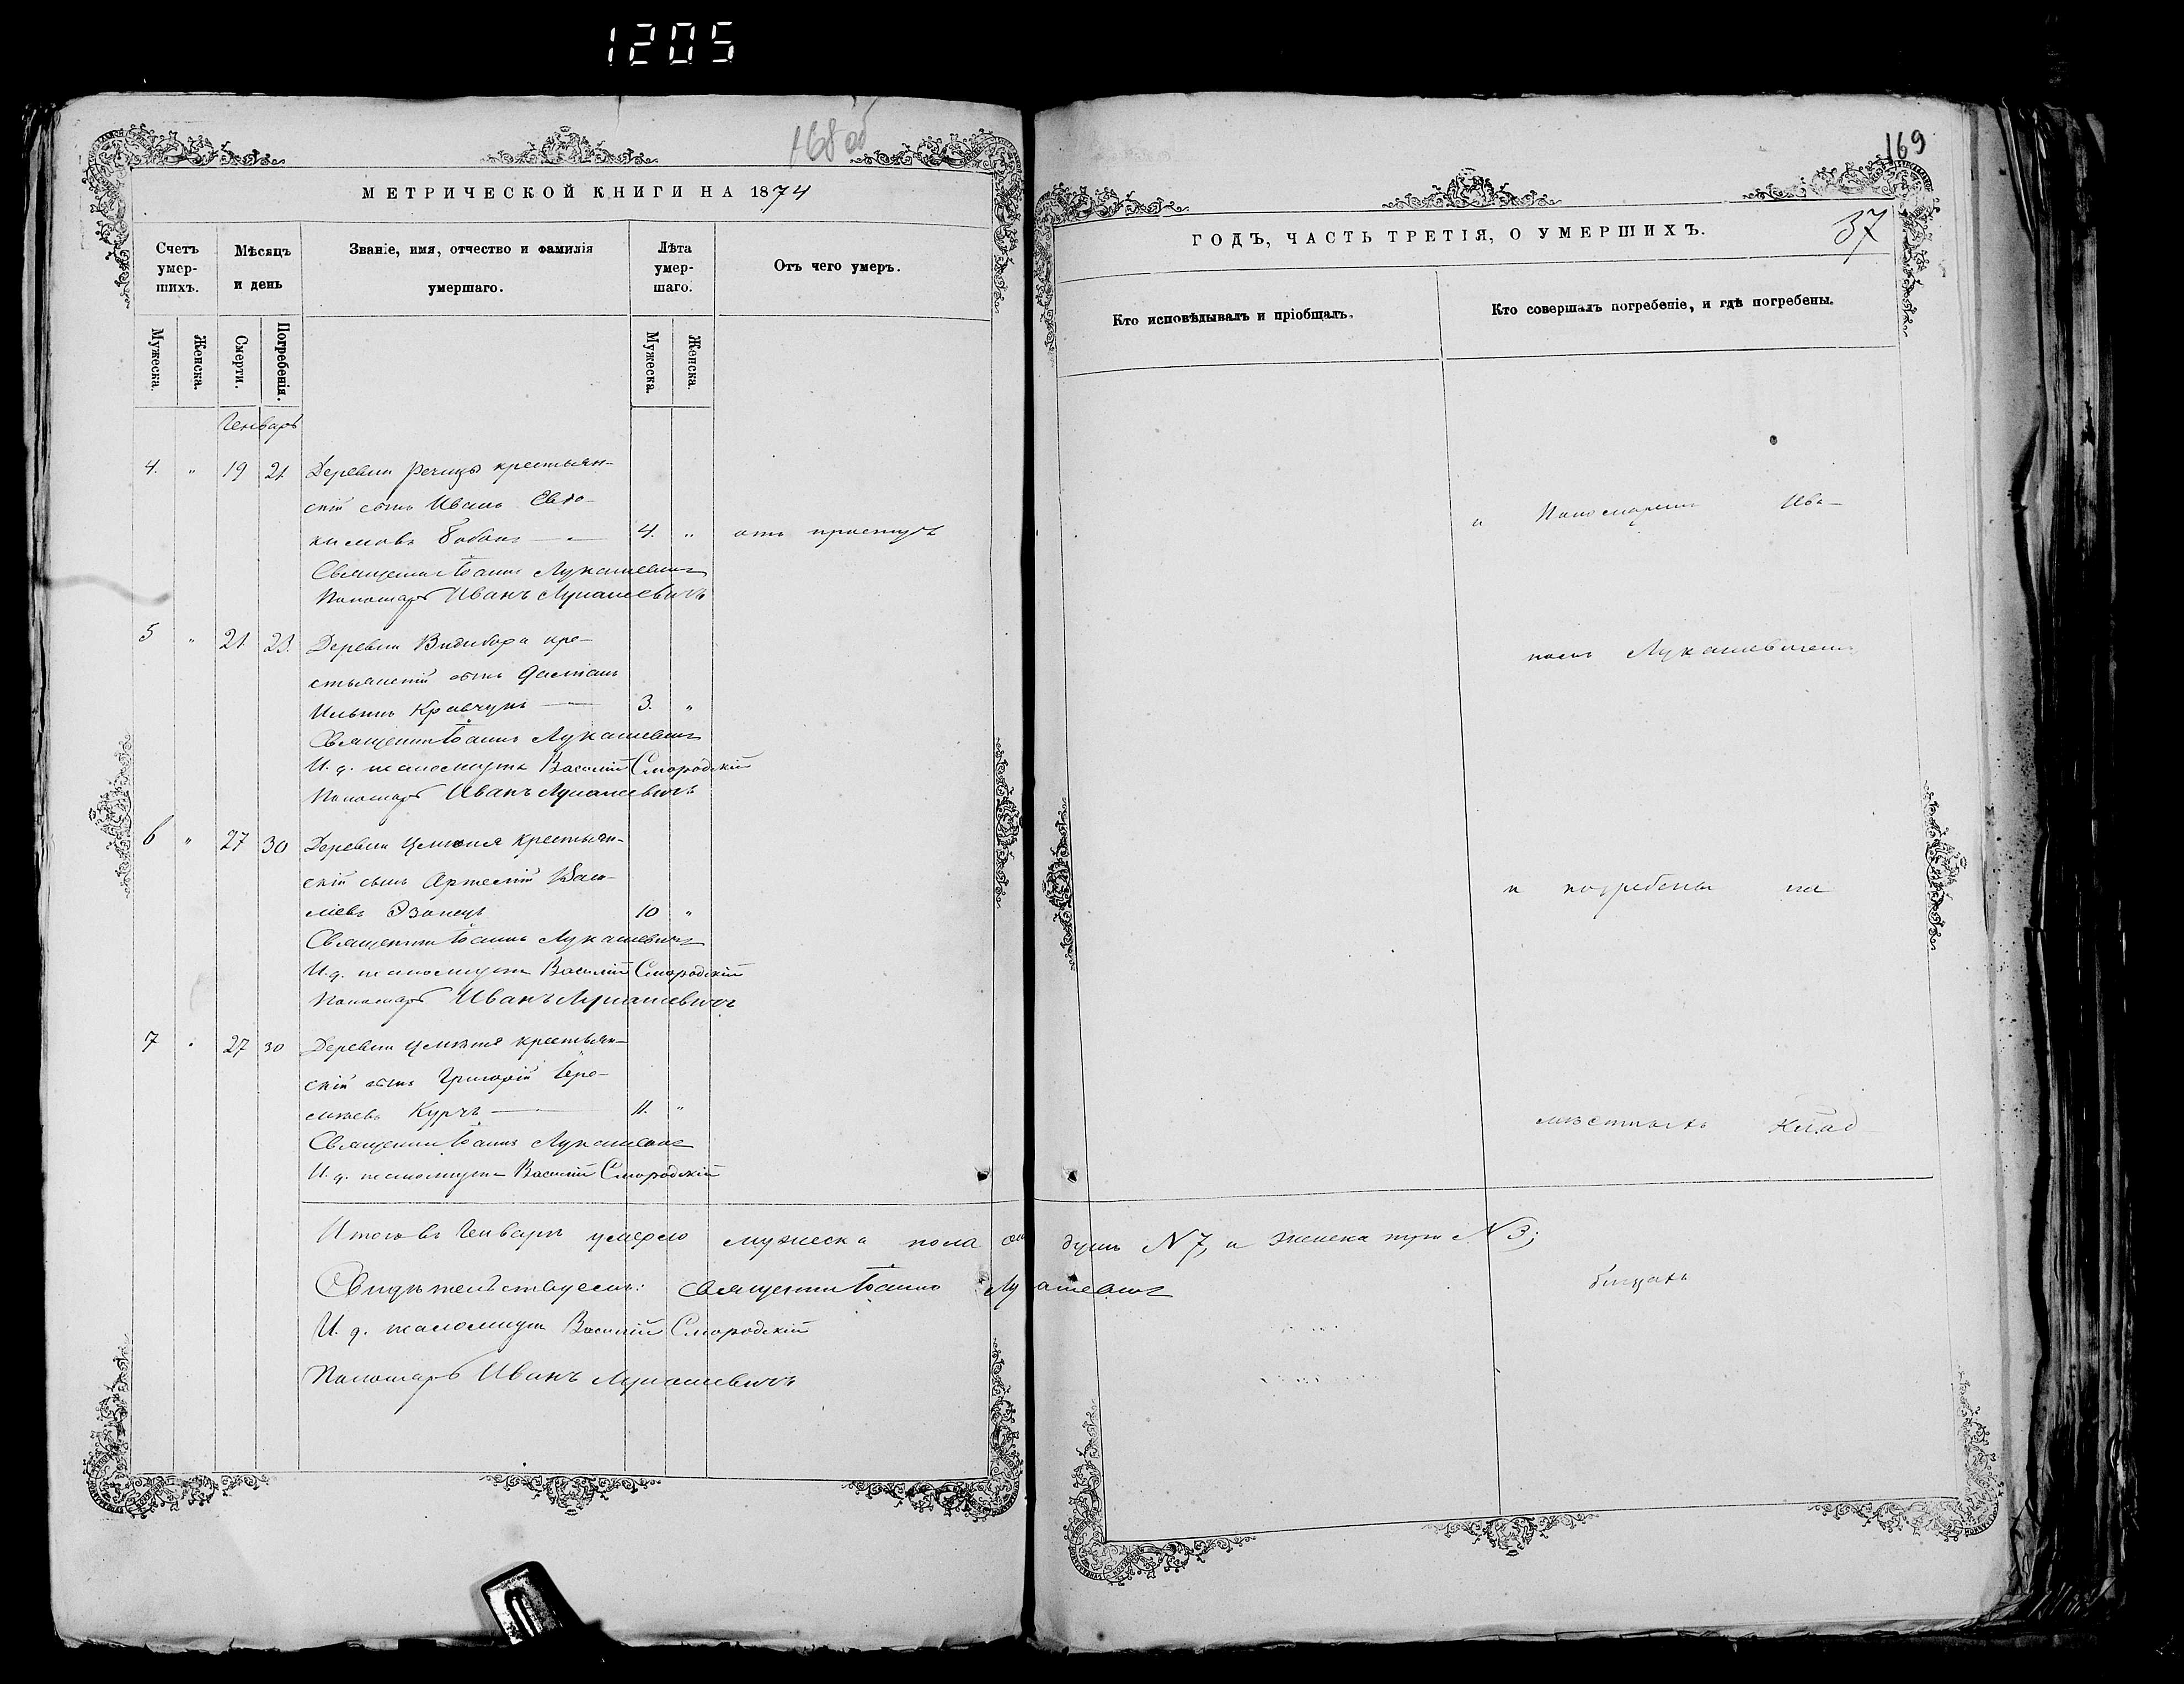 1205
168 об
МЕТРИЧЕСКОЙ КНИГИ НА 1874
Счетъ умер-шихъ.
Мѣсяцъ и день
Званіе, имя, отчество и фамилія умершаго.
Лѣта умер-шаго.
Отъ чего умеръ.
Мужеска.
Женска.
Смерти.
Погребенія.
Мужеска.
Женска.
Генварь
4. " 19 21. Деревни Речицы крестьян-
скій сынъ Иванъ Евдо-
кимовъ Бобокъ — 4. " отъ простуд
Священникъ Іоаннъ Лукашевичъ
Пономарь Иванъ Лукашевичъ
5 " 21. 23. Деревни Видибора кре-
стьянскій сынъ
Ильинъ Кравчукъ — 3. "
Священникъ Іоаннъ Лукашевичъ
И. д. псаломщика Василій Смородскій
Пономарь Иванъ Лукашевичъ
6 " 27 30 Деревни крестьян-
скій сынъ Артемій Васи-
ліевъ 10 "
Священникъ Іоаннъ Лукашевичъ
И. д. псаломщика Василій Смородскій
Пономарь Иванъ Лукашевичъ
7 " 27 30 Деревни крестьян-
скій сынъ Григорій Іере-
міевъ Курчъ — 11. "
Священникъ Іоаннъ Лукашевичъ
И. д. псаломщика Василій Смородскій
Итого въ Генварѣ умерло мужеска пола душъ N 7, и женска три N 3;
Свидѣтельствуемъ: Священникъ Іоаннъ Лукашевичъ
И. д. псаломщика Василій Смородскій
Пономарь Иванъ Лукашевичъ
169
37
ГОДЪ, ЧАСТЬ ТРЕТІЯ, О УМЕРШИХЪ.
Кто исповѣдывалъ и пріобщалъ.
Кто совершалъ погребеніе, и гдѣ погребены.
и Пономаремъ Ива-
номъ Лукашевичемъ
и погребены на
мѣстныхъ клад
бищахъ